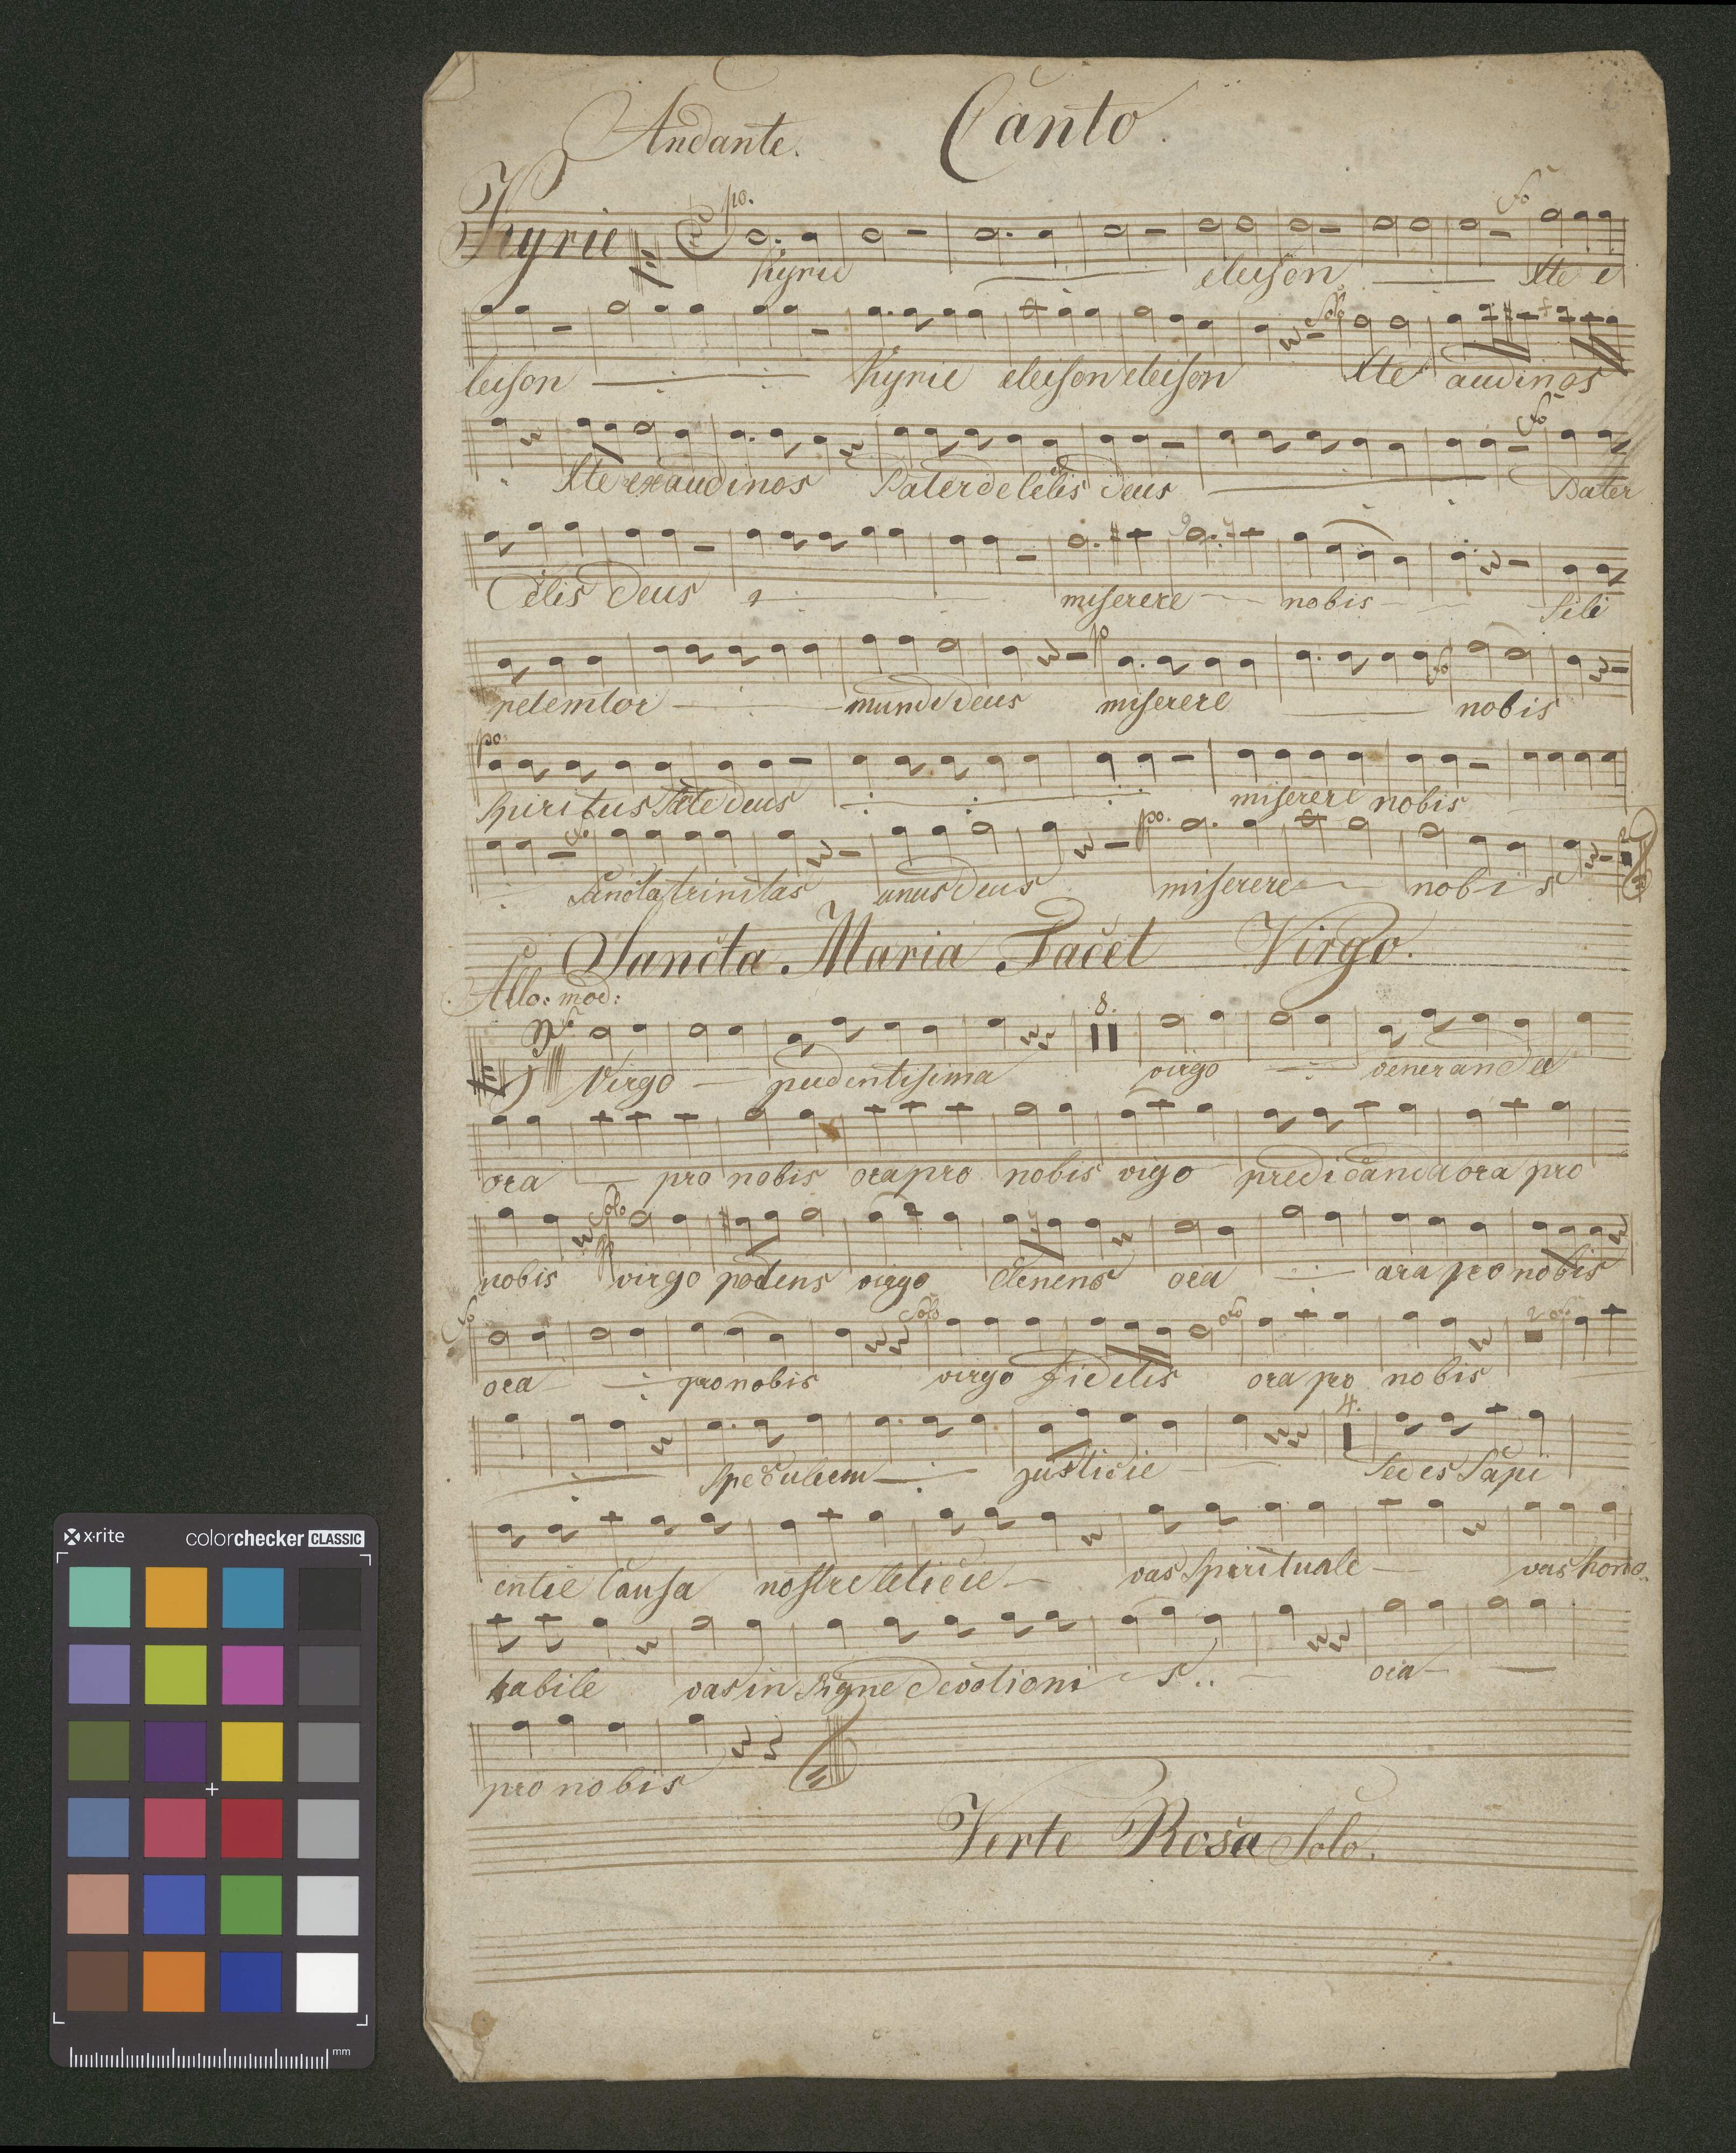 Andante. Canto.
Kyrie po. fo
Kyrie eleison Xte e
Solo
leison Kyrie eleison eleison Xte audi nos
fo
Xte exaudi nos Pater de celis Deus Pater
celis Deus miserere nobis fili
po fo
redemtor mundi deus miserere nobis
po.
Spiritus Scte deus miserere nobis
fo po.
Sancta trinitas unus Deus miserere nobis
Sancta Maria Tacet Virgo.
Allo: mod:
8.
Virgo prudentisima virgo veneranda
ora pro nobis ora pro nobis vigo predicanda ora pro
Solo
nobis virgo potens virgo clemens ora ara pro nobis
fo Solo fo 2 fo
ora pro nobis virgo fidelis ora pro nobis
4.
Speculum justicie Sedes Sapi
entie Causa nostre leticie vas Spirituale vas hono.
rabile vas in Signe Devotionis.. ora
pro nobis
Verte Rosa Solo.
x·rite colorchecker CLASSIC
mm